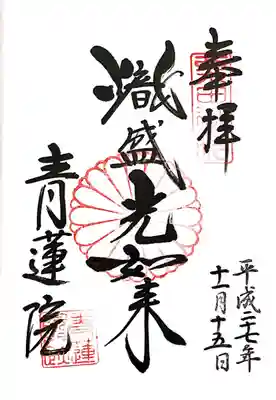 奉拝
熾盛光如来
青蓮院
平成二十七年
十一月十五日